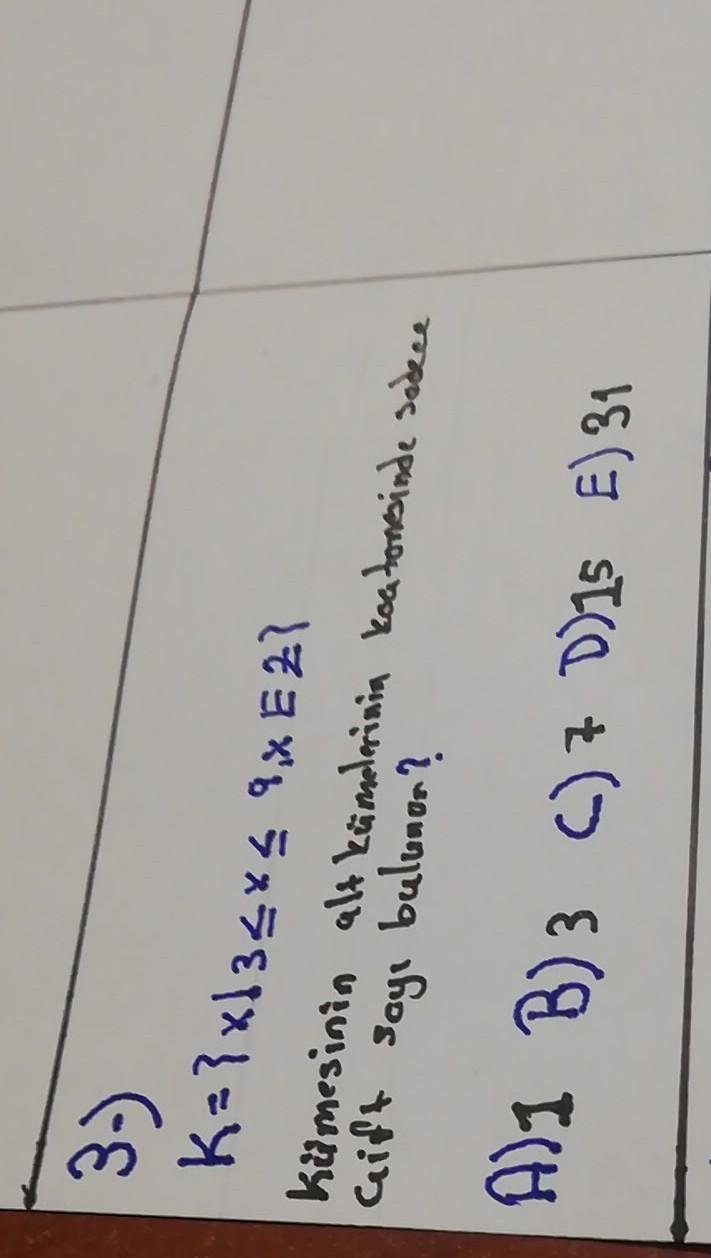 3-)
K={x|3≤x≤9,x∈Z}
Kümesinin alt kümelerinin kaatanesinde sadece
Çift sayı bulunur?
A)1 B)3 C)7 D)15 E)31